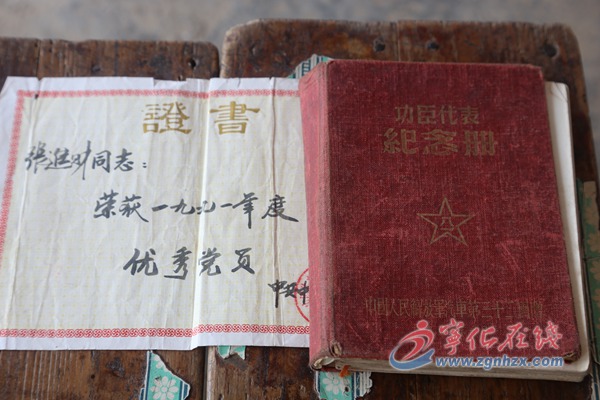 證書
張進财同志:
荣获一九九一年度
优秀党员
功臣代表
紀念册
宁化在线
www.zgnhzx.com